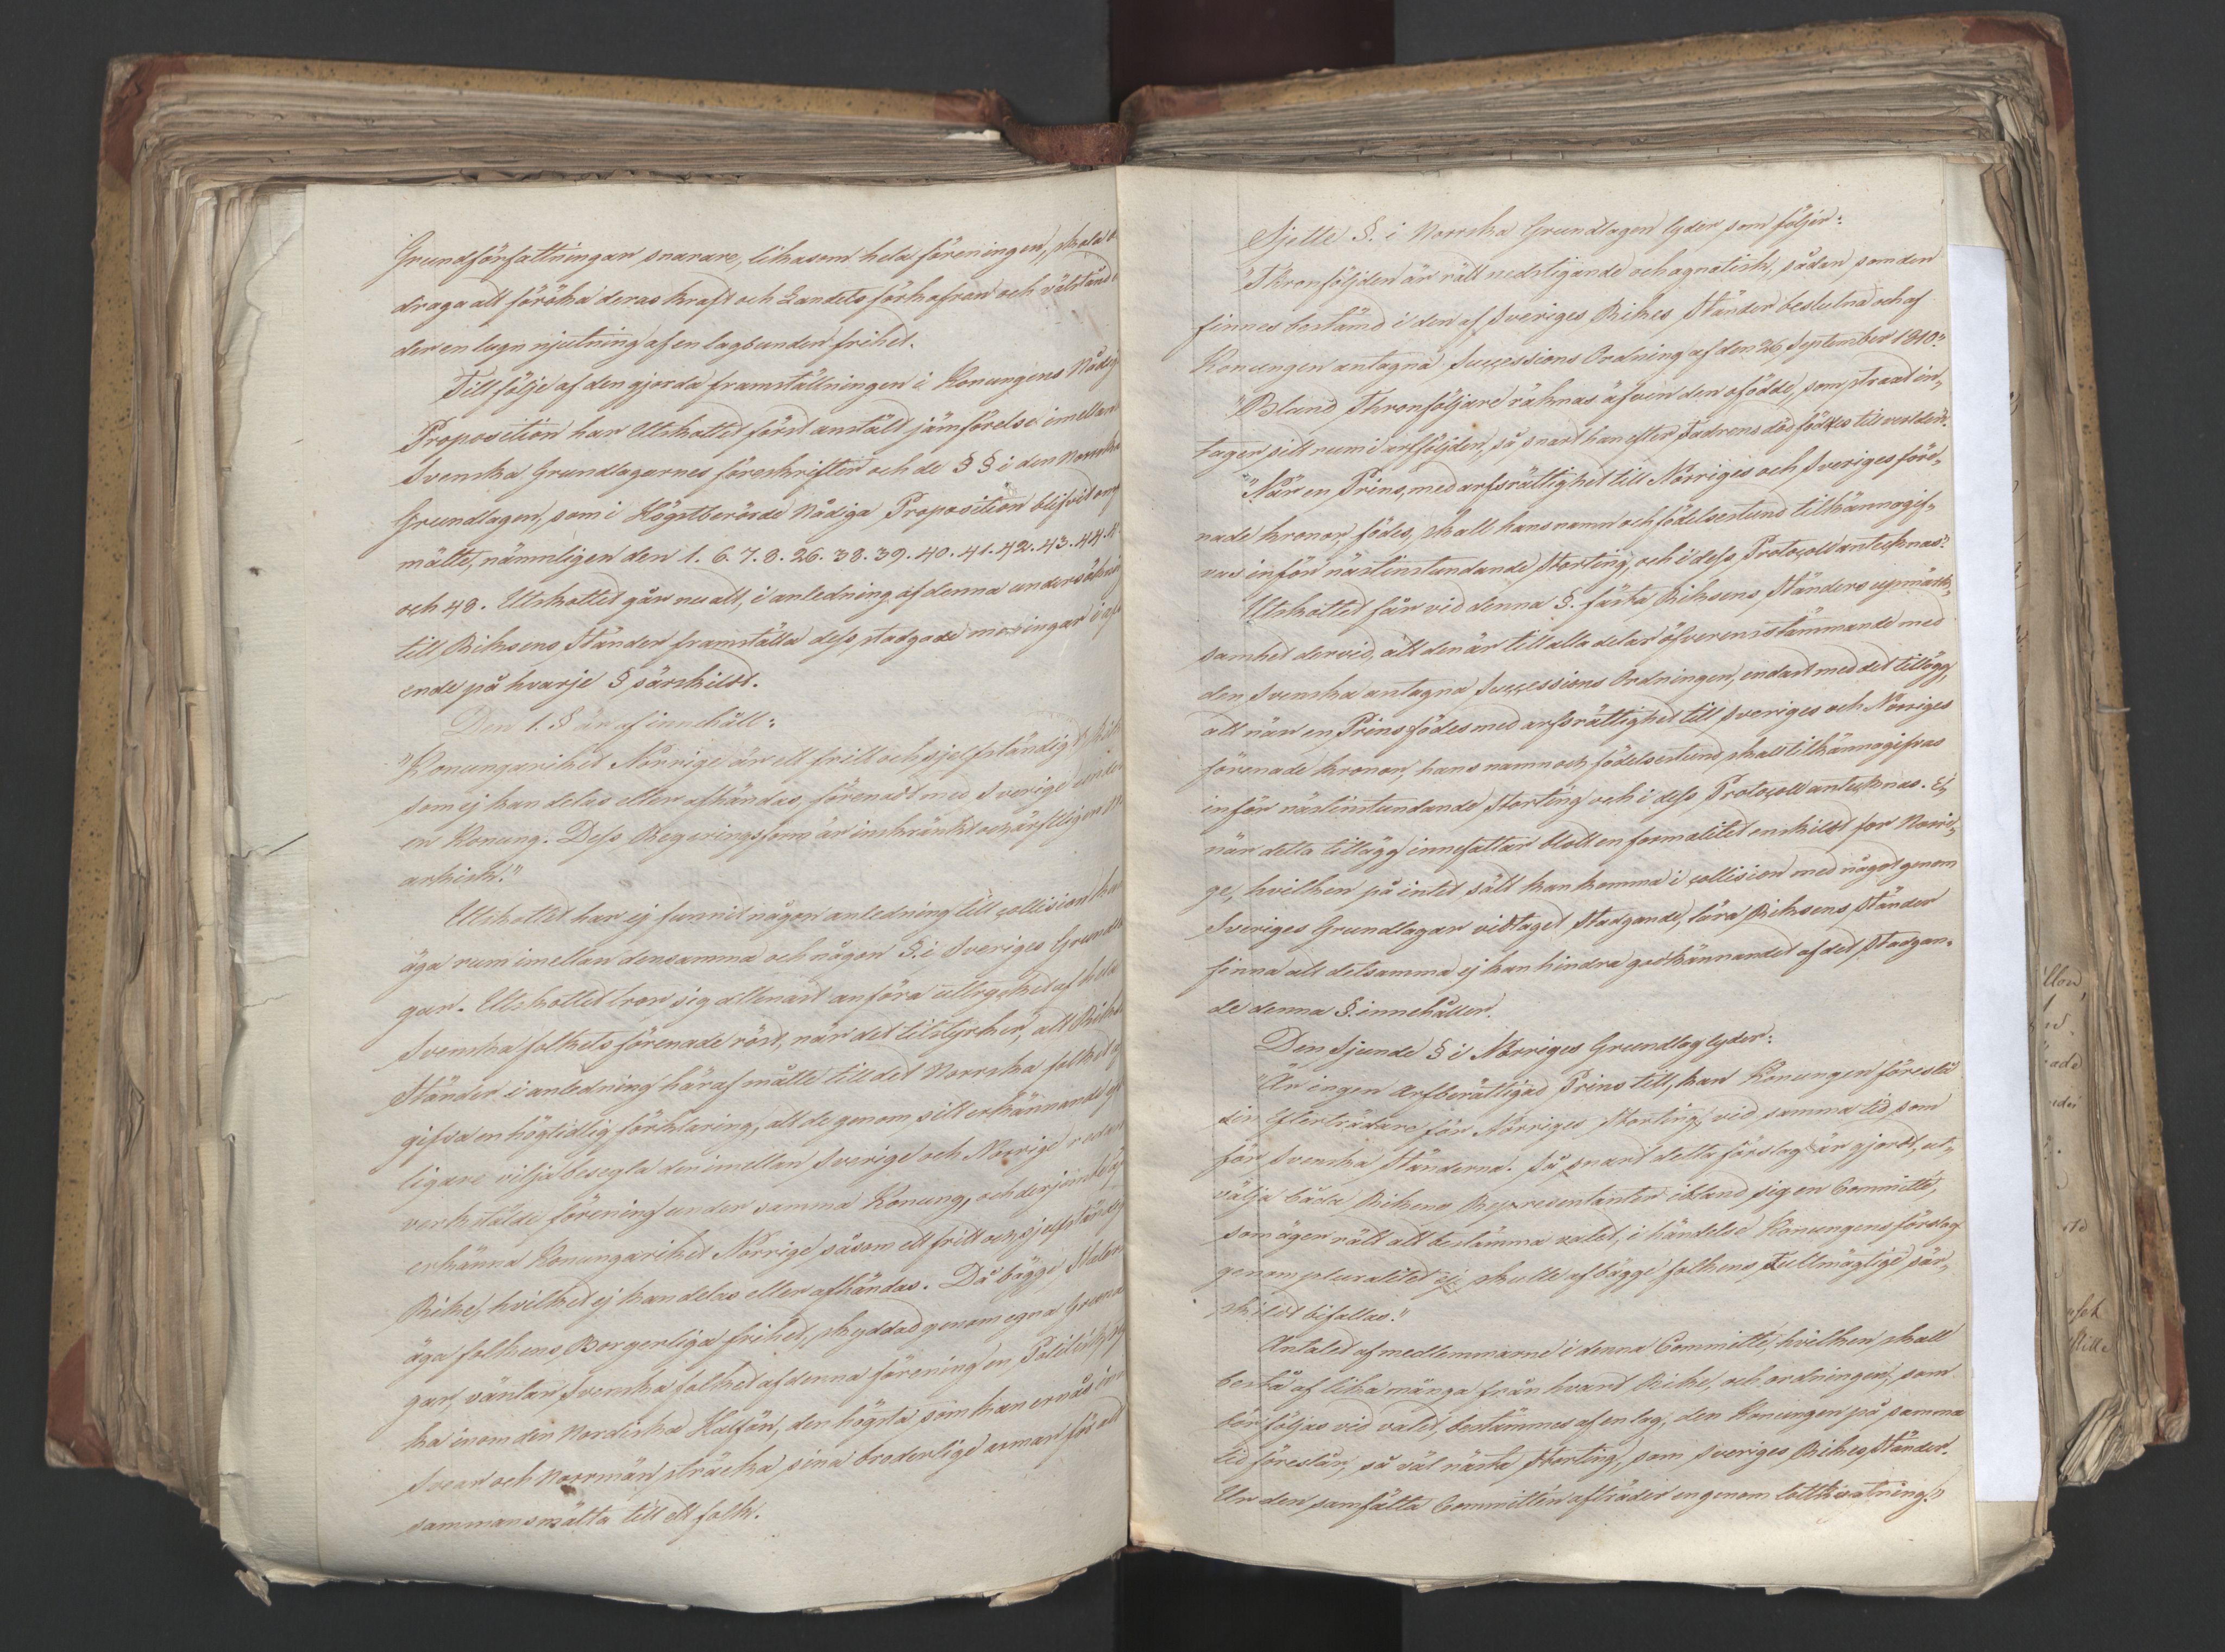 Grundförfattningar snarare, likasom hela föreningen, skola
draga att föröka deras kraft och Landets förkofran och välstånd
der en lugn njutning af en lagbunden frihet.
Till följe af den gjorda framställningen i Konungens Nådiga
Proposition har Utskottet först anstält jämförelse imellan
Svenska Grundlagarnes föreskrifter och de § § i den Norrska
Grundlagen, som i Högstberörde Nådiga Proposition blifvit om
mälte, nämnligen den 1. 6. 7. 8. 26. 38. 39. 40. 41. 42. 43. 44.
och 48. Utskottet går nu att, i anledning af denna undersökning
till Riksens Ständer framställa dess stadgade meningar i af
ende på hvarje § särskildt.
Den 1. § är af innehåll:
"Konungariket Norrige är ett fritt och sjelfständigt Rike
som ej kan delas eller afhändas, förenadt med Sverige under
en Konung. Dess Regeringsform är inskränkt och ärftligen M
arkisk."
Utskottet har ej funnit någon anledning till collision kan
äga rum imellan densamma och någon §. i Sveriges Grundla
gar. Utskottet tror sig allenast anföra uttrycket af hela
Svenska folkets förenade röst, när det tillstyrker, att Riksens
Ständer i anledning häraf måtte till det Norrska folket
gifva en högtidlig förklaring, att de genom sitt erkännande
ligare vilja besegla den imellan Sverige och Norrige redan
verkstälde förening under samma Konung, och derjemte
erkänna Konungariket Norrige såsom ett fritt och sjelfständigt
Rike, hvilket ej kan delas eller afhändas. Då bägge
äga folkens Borgerliga frihet, skyddad genom egna Grundla
gar, väntar Svenska folket af denna förening en Politisk
ka inom den Nordiska Halfön, den högsta som kan ernås
Svear och Norrmän sträcka sina broderlige armar för att
sammansmälta till ett folk.
Sjette §. i Norrska Grundlagen lyder som följer:
"Thronföljden är rätt nedstigande och agnatisk, sådan som den
finnes bestämd i den af Sveriges Rikes Ständer beslutna och af
Konungen antagna Successions Ordning af den 26 September 1810."
"Bland Thronföljare räknas äfven den ofödde, som straxt in„
tager sitt rum i arfföljden, så snart han efter Fadrens död födes till verlden."
"När en Prins, med arfsrättighet till Norriges och Sveriges före„
nade kronor, födes, skall hans namn och födelsestund tillkännagif„
vas inför nästinstundande Storting, och i dess Protocoll antecknas."
Utskottet får vid denna §. fästa Riksens Ständers upmärk„
samhet dervid, att den är till alla delar öfverensstämmande med
den Svenska antagna Successions Ordningen, endast med det tillägg,
att när en Prins födes med arfsrättighet till Sveriges och Norriges
förenade kronor, hans namn och födelsestund skall tillkännagifvas
inför nästinstundande Storting och i dess Protocoll antecknas. Ej
när detta tillägg innefattar blott en formalitet enskildt for Norri„
ge, hvilken på intet sätt kan komma i collision med något genom
Sveriges Grundlagar vidtaget Stadgande, lära Riksens Ständer
finna att detsamma ej kan hindra godkännandet af det Stadgan„
de denna §. innehåller.
Den Sjunde § i Norriges Grundlag lyder:
"Är ingen Arfberättigad Prins till, kan Konungen föreslå
sin Efterträdare för Norriges Storting, vid samma tid, som
för Svenska Ständerna. Så snart detta förslag är gjordt, ut„
välja båda Rikens Representanter ibland sig en Committé,
som äger rätt att bestämma valet, i händelse Konungens förslag
genom pluralitet ej skulle af bägge folkens Fullmäktige sär„
skildt bifallas."
Antalet af medlemmarne i denna Committé, hvilken skall
bestå af lika många från hvart Rike, och ordningen, som
bör följas vid valet, bestämmes af en lag, den Konungen på samma
tid föreslår, så väl nästa Storting, som Sveriges Rikes Ständer.
Ur den samfälta Committén afträder en genom lottkastning."